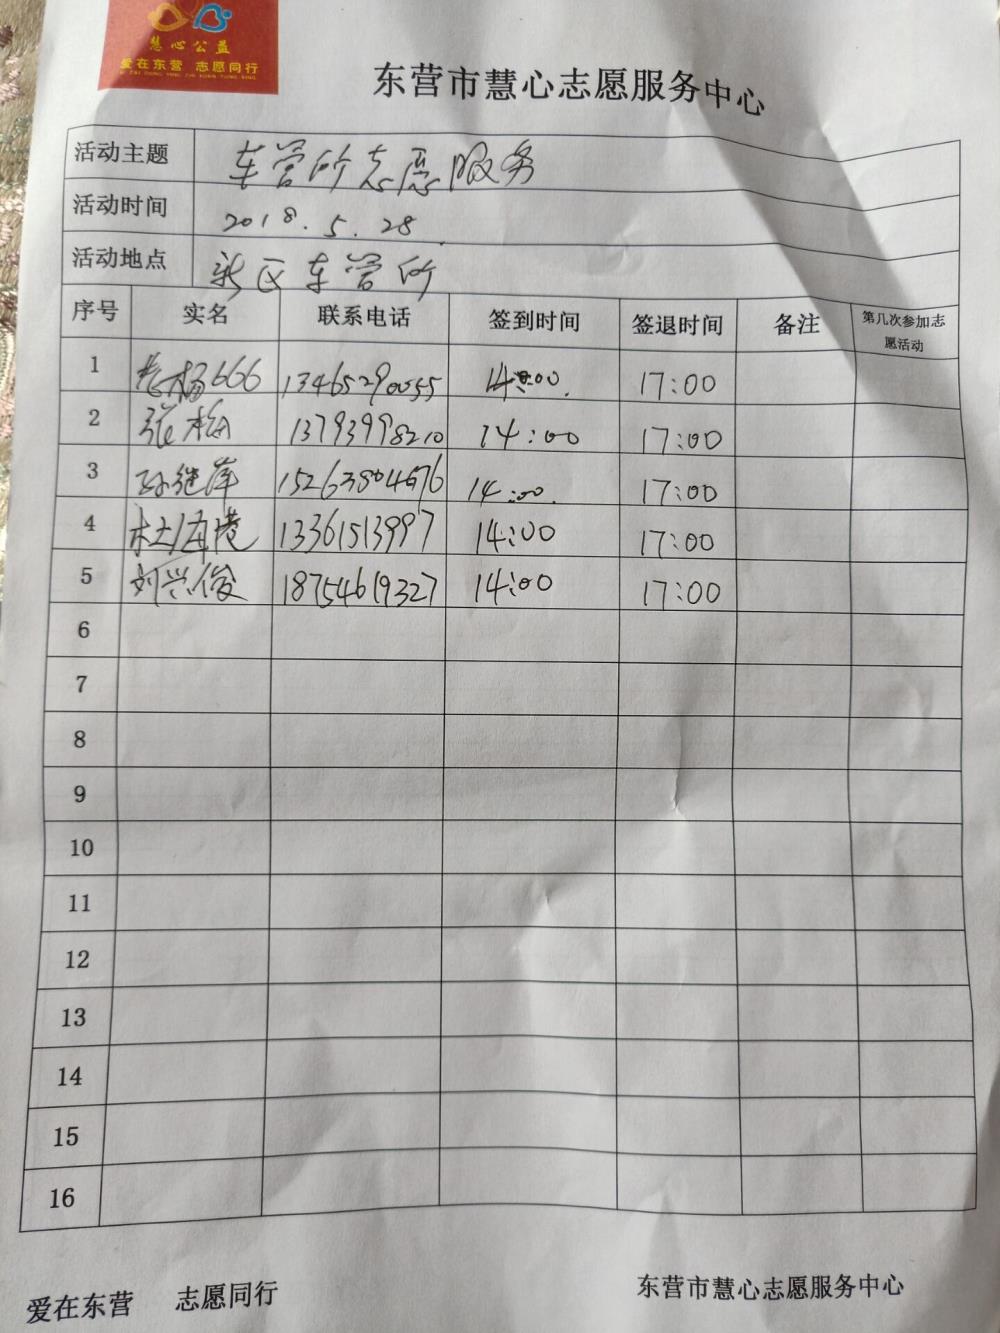 慧心公益
爱在东营 志愿同行
东营市慧心志愿服务中心
活动主题 车管所志愿服务
活动时间 2018.5.28.
活动地点 新区车管所
序号 实名 联系电话 签到时间 签退时间 备注 第几次参加志愿活动
1 老杨666 13465290055 14:00. 17:00
2 张梅 13793998210 14:00 17:00
3 孙继萍 15263804676 14:00. 17:00
4 杜海港 13361513997 14:00 17:00
5 刘兴俊 18754619327 14:00 17:00
6
7
8
9
10
11
12
13
14
15
16
爱在东营 志愿同行 东营市慧心志愿服务中心